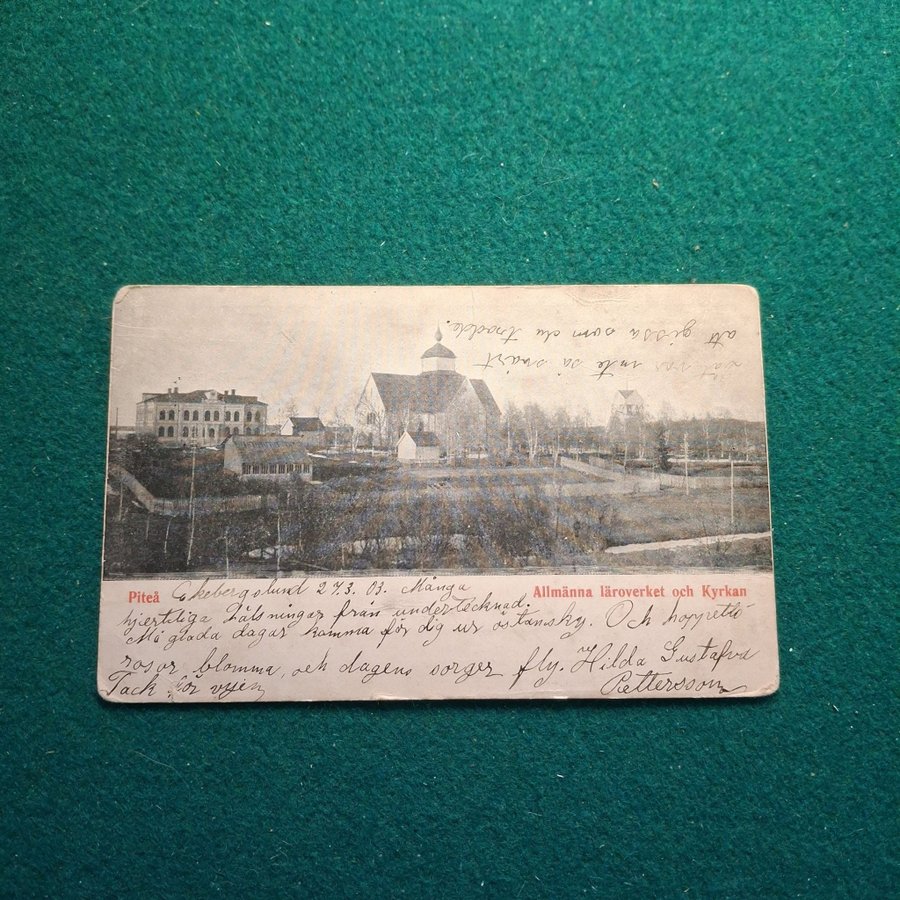 att gissa som du trodde.
det var inte så snart
Piteå
Allmänna läroverket och Kyrkan
Ekebergslund 27.3. 03. Många
hjertliga hälsningar från undertecknad.
Må glada dagar komma för dig ur östansky. Och hoppets
rosor blomma, och dagens sorger fly. Hilda Gustafva
Tack för vyen
Pettersson